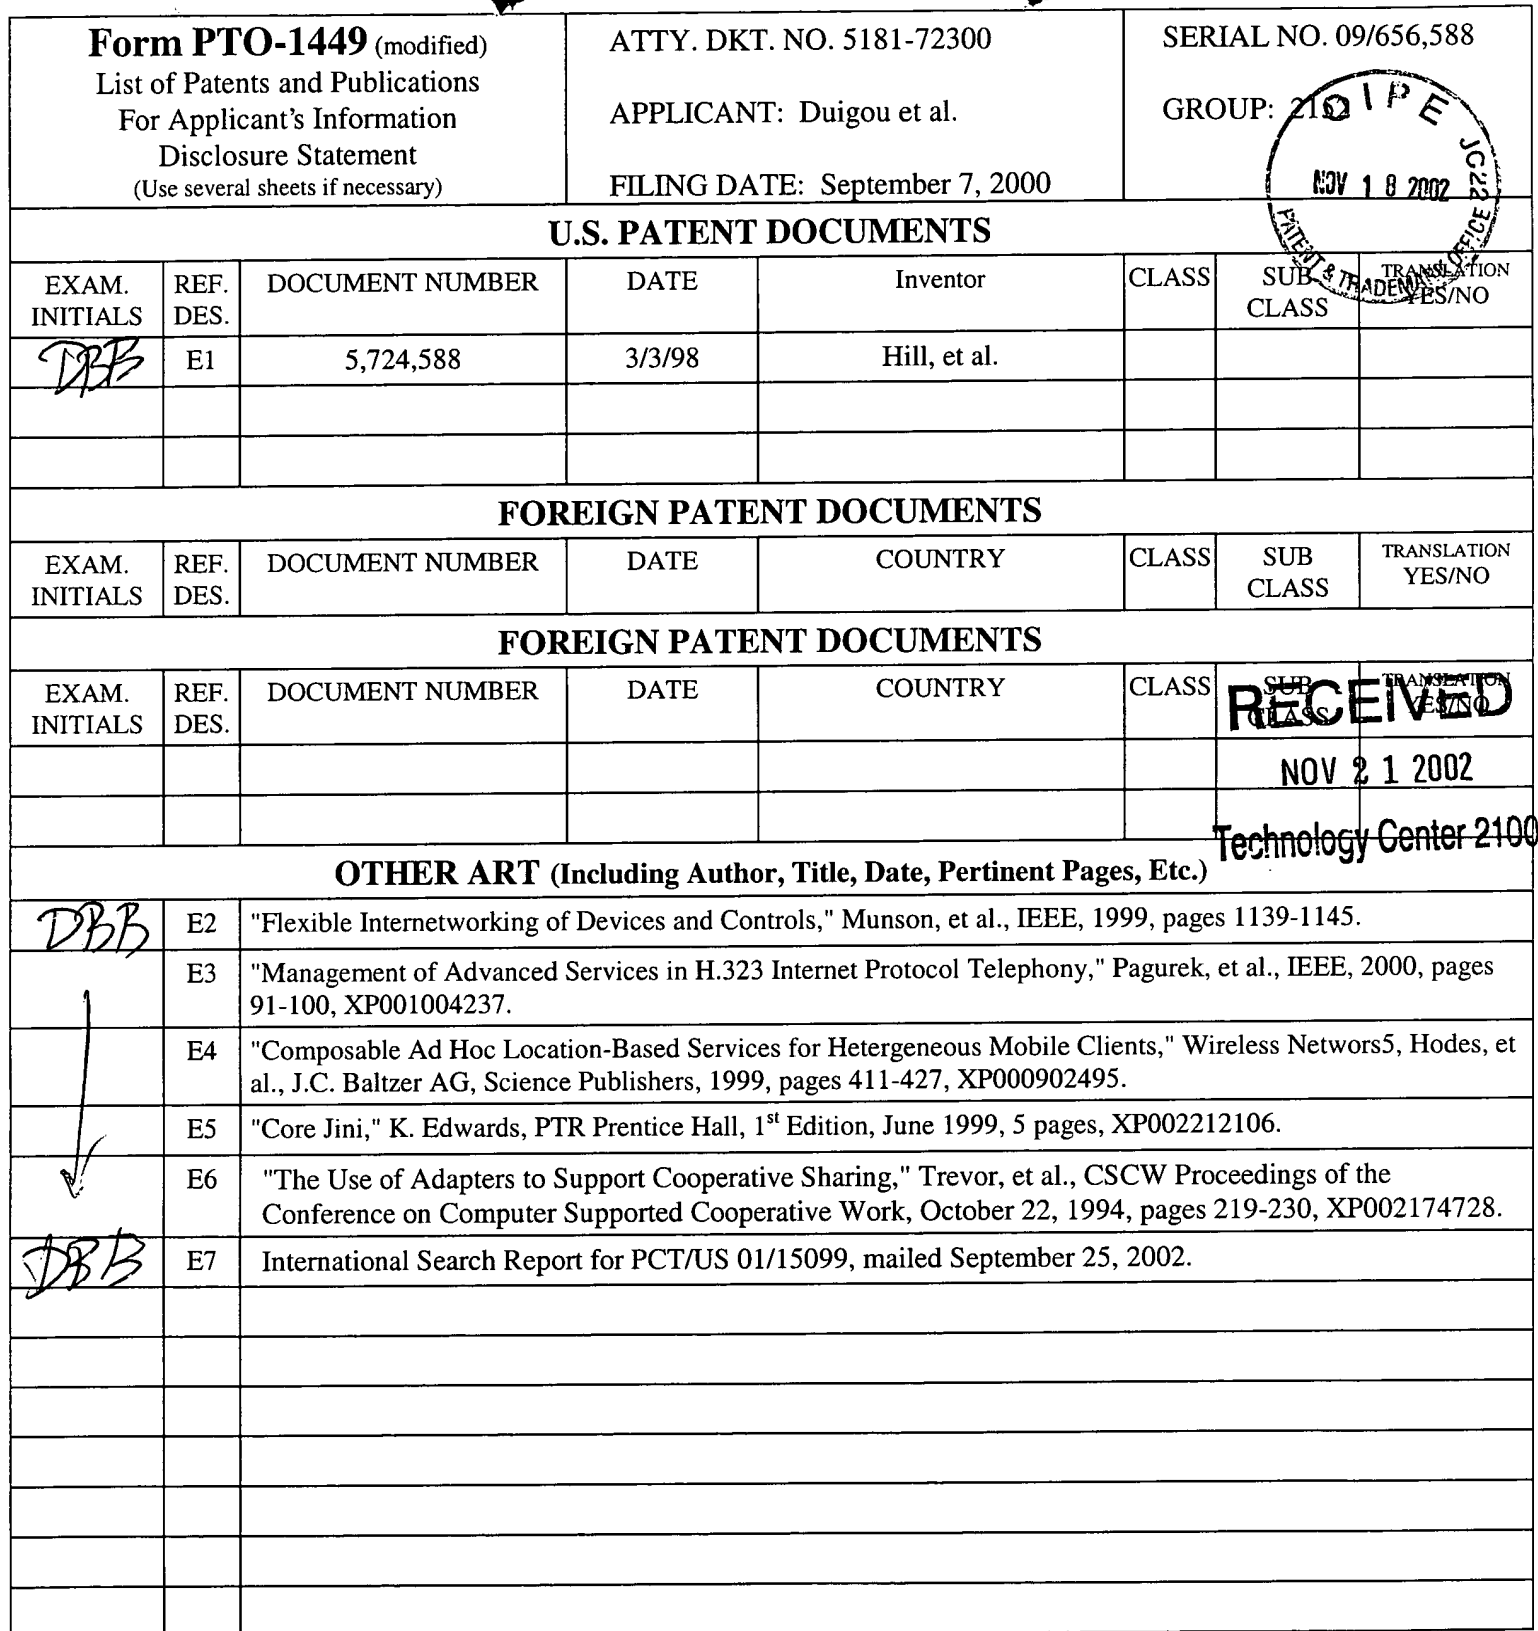 Form PTO-1449 (modified)
List of Patents and Publications
For Applicant's Information
Disclosure Statement
(Use several sheets if necessary)
ATTY. DKT. NO. 5181-72300
APPLICANT: Duigou et al.
FILING DATE: September 7, 2000
SERIAL NO. 09/656,588
GROUP:
OIPE JC22
NOV 18 2002
PATENT & TRADEMARK OFFICE
U.S. PATENT DOCUMENTS
EXAM. INITIALS REF. DES. DOCUMENT NUMBER DATE Inventor CLASS SUB CLASS TRANSLATION YES/NO
DBB E1 5,724,588 3/3/98 Hill, et al.
FOREIGN PATENT DOCUMENTS
EXAM. INITIALS REF. DES. DOCUMENT NUMBER DATE COUNTRY CLASS SUB CLASS TRANSLATION YES/NO
FOREIGN PATENT DOCUMENTS
EXAM. INITIALS REF. DES. DOCUMENT NUMBER DATE COUNTRY CLASS SUB CLASS TRANSLATION YES/NO
RECEIVED
NOV 21 2002
Technology Center 2100
OTHER ART (Including Author, Title, Date, Pertinent Pages, Etc.)
DBB E2 "Flexible Internetworking of Devices and Controls," Munson, et al., IEEE, 1999, pages 1139-1145.
E3 "Management of Advanced Services in H.323 Internet Protocol Telephony," Pagurek, et al., IEEE, 2000, pages
91-100, XP001004237.
E4 "Composable Ad Hoc Location-Based Services for Hetergeneous Mobile Clients," Wireless Networs5, Hodes, et
al., J.C. Baltzer AG, Science Publishers, 1999, pages 411-427, XP000902495.
E5 "Core Jini," K. Edwards, PTR Prentice Hall, 1st Edition, June 1999, 5 pages, XP002212106.
E6 "The Use of Adapters to Support Cooperative Sharing," Trevor, et al., CSCW Proceedings of the
Conference on Computer Supported Cooperative Work, October 22, 1994, pages 219-230, XP002174728.
DBB E7 International Search Report for PCT/US 01/15099, mailed September 25, 2002.